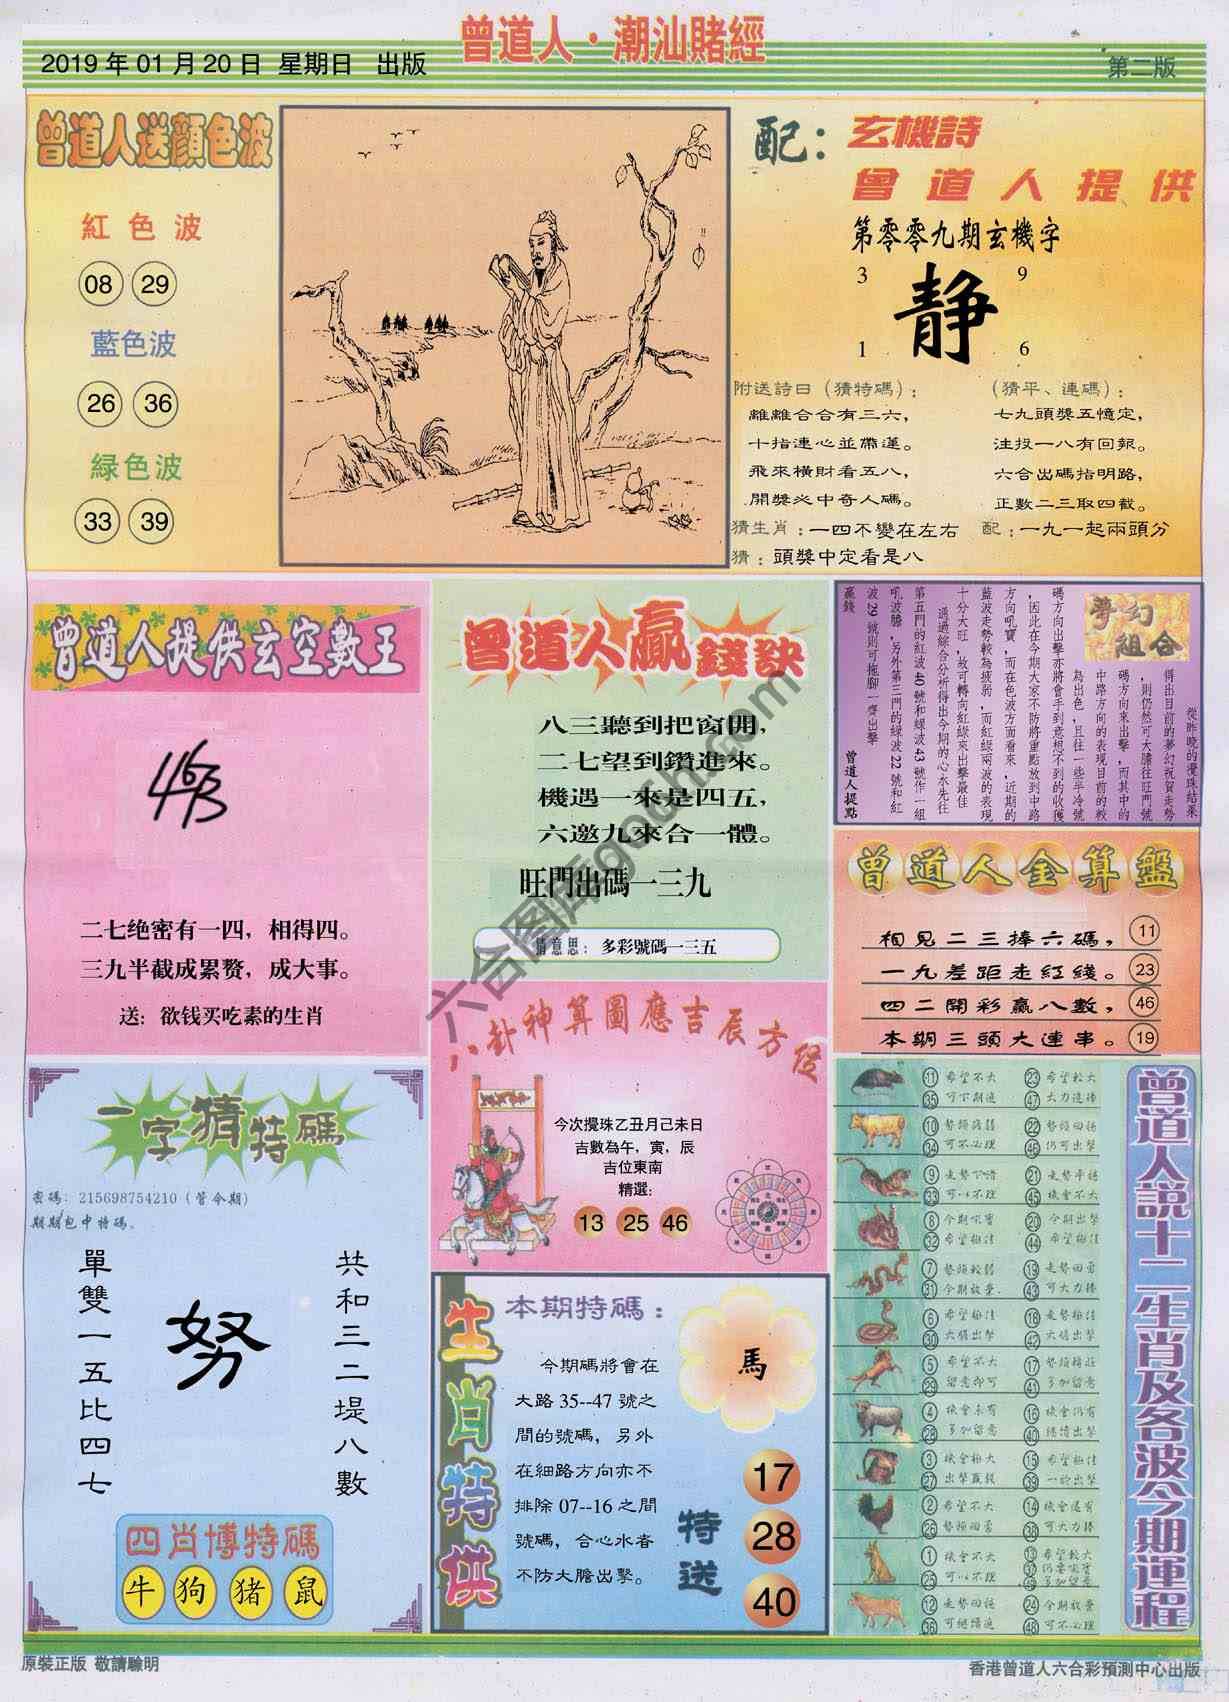 曾道人·潮汕賭經
2019 年 01 月 20 日 星期日 出版
第二版
曾道人送顏色波
紅色波
08 29
藍色波
26 36
緑色波
33 39
配：
玄機詩
曾道人提供
第零零九期玄機字
3 9
静
1 6
附送詩曰（猜特碼）：
離離合合有三六，
十指連心並帶運。
飛來橫財看五八，
開獎必中奇人碼。
（猜平、連碼）：
七九頭獎五憶定，
注投一八有回報。
六合出碼指明路，
正數二三取四截。
猜生肖：一四不變在左右
配：一九一起兩頭分
猜：頭獎中定看是八
曾道人提供玄空數王
463
二七绝密有一四，相得四。
三九半截成累赘，成大事。
送：欲钱买吃素的生肖
曾道人贏錢訣
八三聽到把窗開，
二七望到鑽進來。
機遇一來是四五，
六邀九來合一體。
旺門出碼一三九
猜意思：多彩號碼一三五
夢幻組合
從昨晚的攪珠結果
得出目前的夢幻祝賀走勢
，則仍然可大膽往旺門號
碼方向來出擊，而其中的
中路方向的表現目前的較
為出色，且往一些半冷號
碼方向出擊亦將會手到意想不到的收獲
，因此在今期大家不防將重點放到中路
方向吼寶，而在色波方面看來，近期的
藍波走勢較為疲弱，而紅綠兩波的表現
十分大旺，故可轉向紅綠來出擊最佳
通過綜合分析得出今期的心水先往
第五門的紅波 40 號和绿波 43 號作一組
吼波膽，另外第三門的绿波 22 號和紅
波 29 號則可拖腳一齊出擊
贏錢
曾道人提點
曾道人金算盤
相見二三捧六碼， 11
一九差距走紅綫。 23
四二開彩贏八數， 46
本期三頭大連串。 19
八卦神算圖應吉辰方位
今次攪珠乙丑月己未日
吉數為午，寅，辰
吉位東南
精選:
13 25 46
一字猜特碼
密碼：215698754210（管今期）
期期包中特碼。
單雙一五比四七
努
共和三二堤八數
四肖博特碼
牛 狗 猪 鼠
生肖特供
本期特碼：
今期碼將會在
大路 35--47 號之
間的號碼，另外
在細路方向亦不
排除 07--16 之間
號碼，合心水者
不防大膽出擊。
馬
特送
17
28
40
曾道人説十二生肖及各波今期運程
11 希望不大 23 希望較大
35 可下期追 47 大力追捧
10 22 走勢回揚
34 可不必理 46 仍可出擊
9 21
33 可以不理 45 機會不大
8 今期吼寶 20 今期出擊
32 希望極佳 44 希望極佳
7 勢頭較弱 19 走勢回勇
31 今期放棄 43 可大力捧
6 希望極佳 18 走勢極佳
30 大膽出擊 42 大膽出擊
5 希望不大 17
29 留意即可 41 多加留意
4 機會未有 16 機會仍有
28 多加留意 40
3 機會極大 15 希望極佳
27 出擊贏錢 39 一於出擊
2 希望不大 14 機會還有
26 勢頭回勇 38 可大力捧
1 機會不大 13 希望較大
25 可以不理 37 仍要吼實
49 多加留意
12 走勢回揚 24 今期放棄
36 可繼續追 48 可不必理
原裝正版 敬請驗明
香港曾道人六合彩預測中心出版
六合图库go6h.com